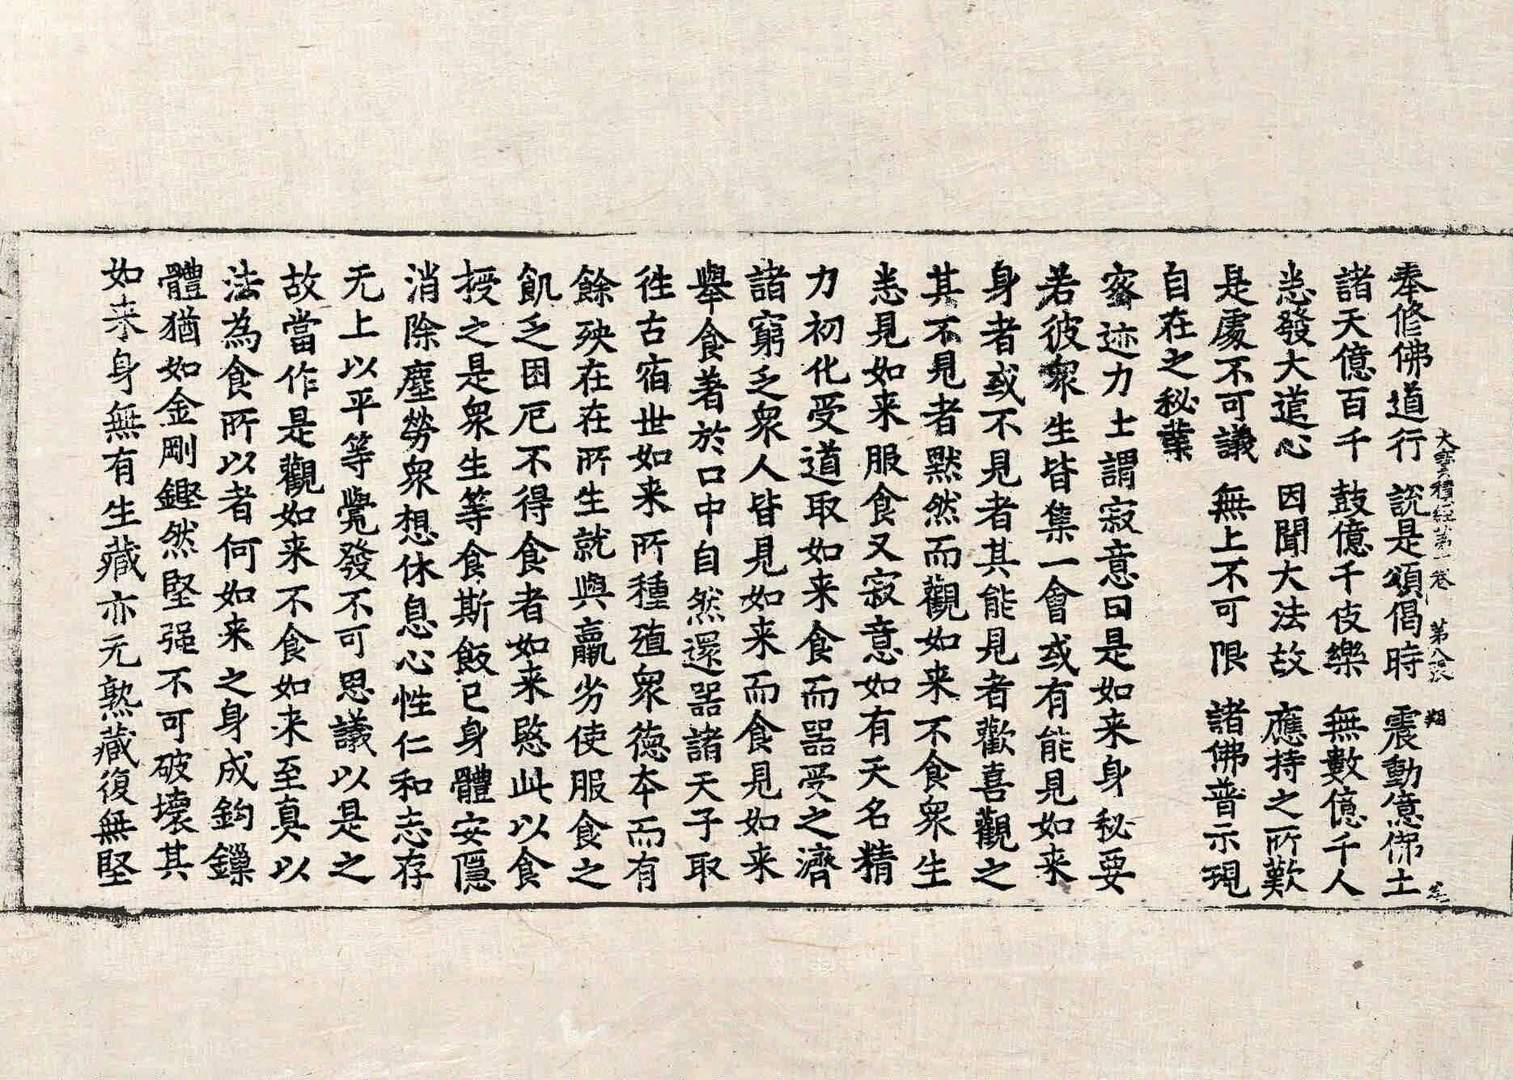 奉修佛道行 說是頌偈時 震動億佛土
諸天億百千 鼓億千伎樂 無數億千人
悉發大道心 因聞大法故 應持之所歎
是處不可議 無上不可限 諸佛普示現
自在之秘業
密迹力士謂寂意曰是如来身秘要
若彼衆生皆集一會或有能見如来
身者或不見者其能見者歡喜觀之
其不見者默然而觀如来不食衆生
悉見如来服食又寂意如有天名精
力初化受道取如来食而器受之濟
諸窮乏衆人皆見如来而食見如来
舉食著於口中自然還器諸天子取
徃古宿世如来所種殖衆德本而有
餘殃在在所生就與羸劣使服食之
飢乏困厄不得食者如来愍此以食
授之是衆生等食斯飯已身體安隱
消除塵勞衆想休息心性仁和志存
无上以平等覺發不可思議以是之
故當作是觀如来不食如来至真以
法為食所以者何如来之身成鈎鏁
體猶如金剛鏗然堅强不可破壞其
如来身無有生藏亦无熟藏復無堅